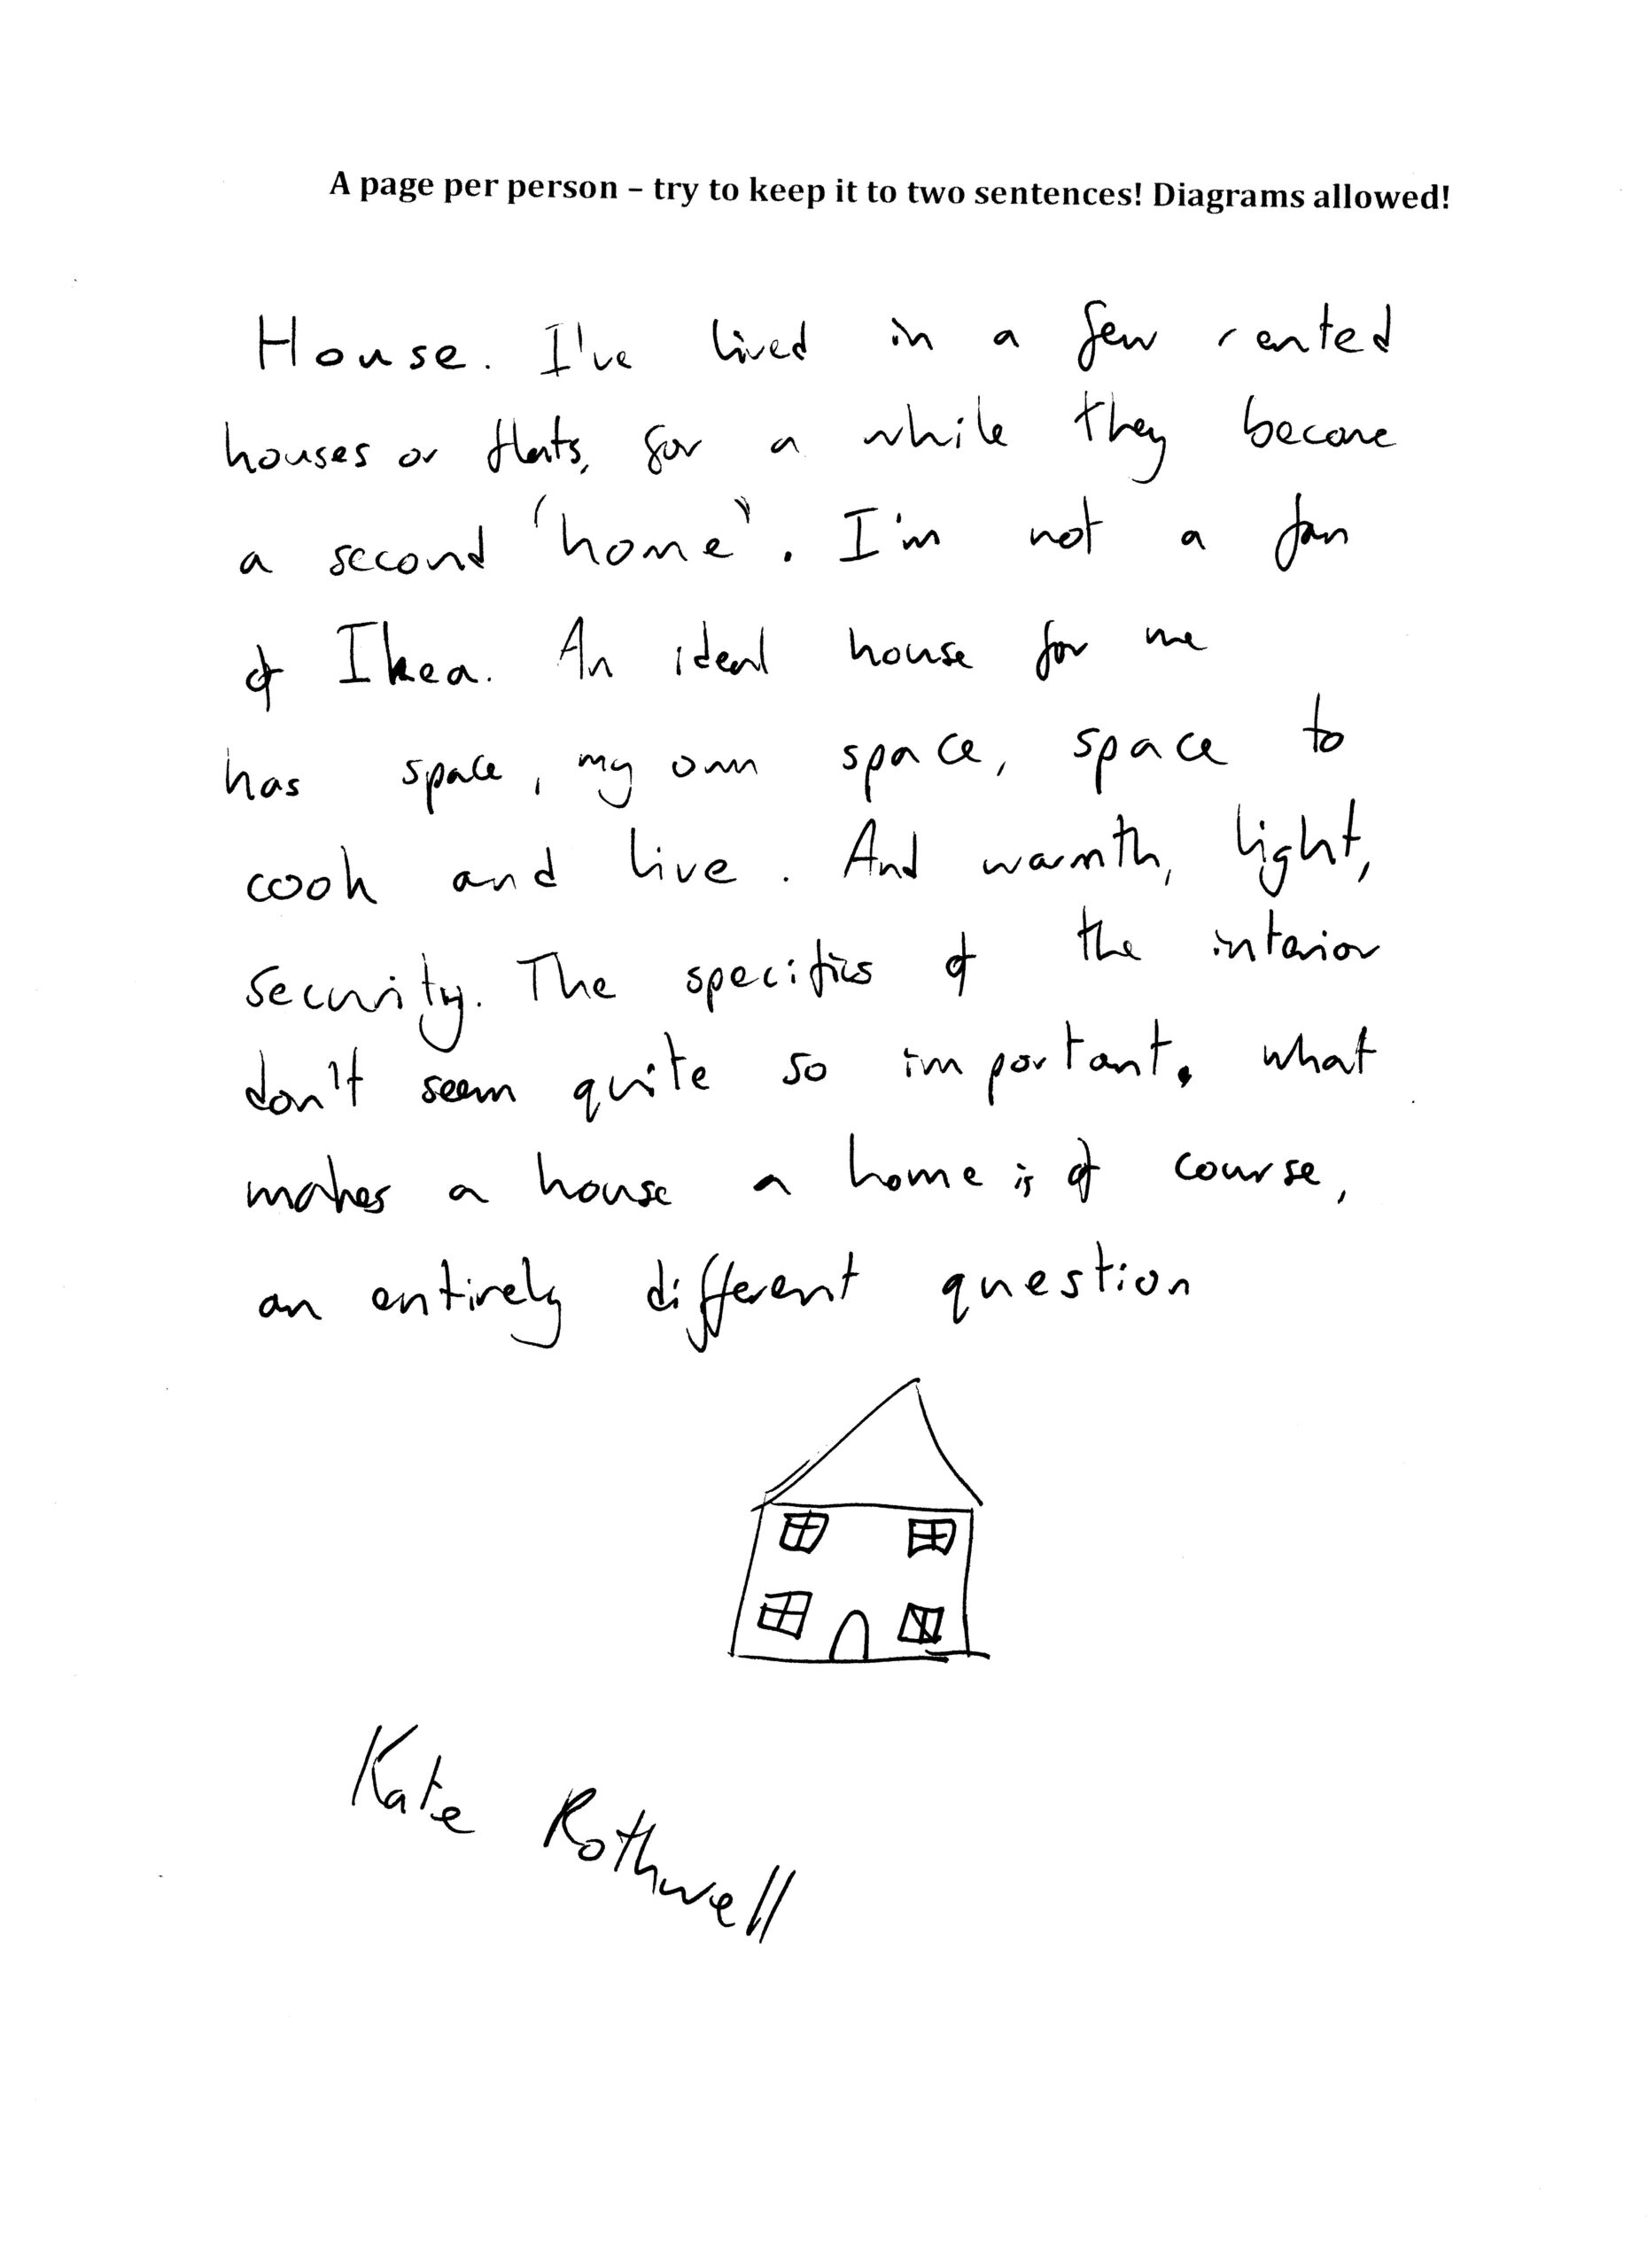 A page per person – try to keep it to two sentences! Diagrams allowed!
House. I've lived in a few rented
houses or flats, for a while they become
a second 'home'. I'm not a fan
of Ikea. An ideal house for me
has space, my own space, space to
cook and live. And warmth, light,
security. The specifics of the interior
don't seem quite so important. what
makes a house a home is of course,
an entirely different question
Kate Rothwell